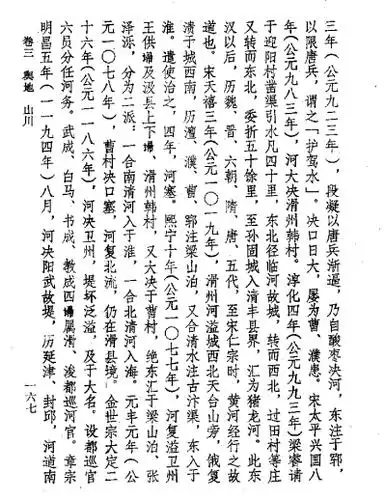 三年（公元九二三年），段凝以唐兵渐逼，乃自酸枣决河，东注于郓，
以限唐兵，谓之「护驾水」。决口日大，屡为曹、濮患。宋太平兴国八
年（公元九八三年），河大决滑州韩村。淳化四年（公元九九三年）梁睿请
于迎阳村凿渠引水凡四十里，东北径临河故城，转而西北，过田村等庄
又转而东北，委折五十馀里，至孙固城入清丰县界，汇为猪龙河。此东
汉以后，历魏、晋、六朝、隋、唐、五代，至宋仁宗时，黄河经行之故
道也。宋天禧三年（公元一〇一九年），滑州河溢城西北天台山旁，俄复
溃于城西南，历澶、濮、曹、郓注梁山泊，又合清水注古汴渠，东入于
淮。遣使治之，四年，河塞。熙宁十年（公元一〇七七年），河复溢卫州
王供埽及汲县上下埽、滑州韩村，又大决于曹村，绝东汇于梁山泊、张
泽泺，分为二派：一合南清河入于淮，一合北清河入海。元丰元年（公
元一〇七八年），曹村决口塞，河复北流，仍在滑县境。金世宗大定二
十六年（公元一一八六年），河决卫州，堤坏泛溢，及于大名。设都巡官
六员分任河务。武成、白马、书成、教成四埽属滑、浚都巡河官。章宗
明昌五年（一一九四年）八月，河决阳武故堤，历延津、封邱，河道南
卷三 舆地 山川
一六七